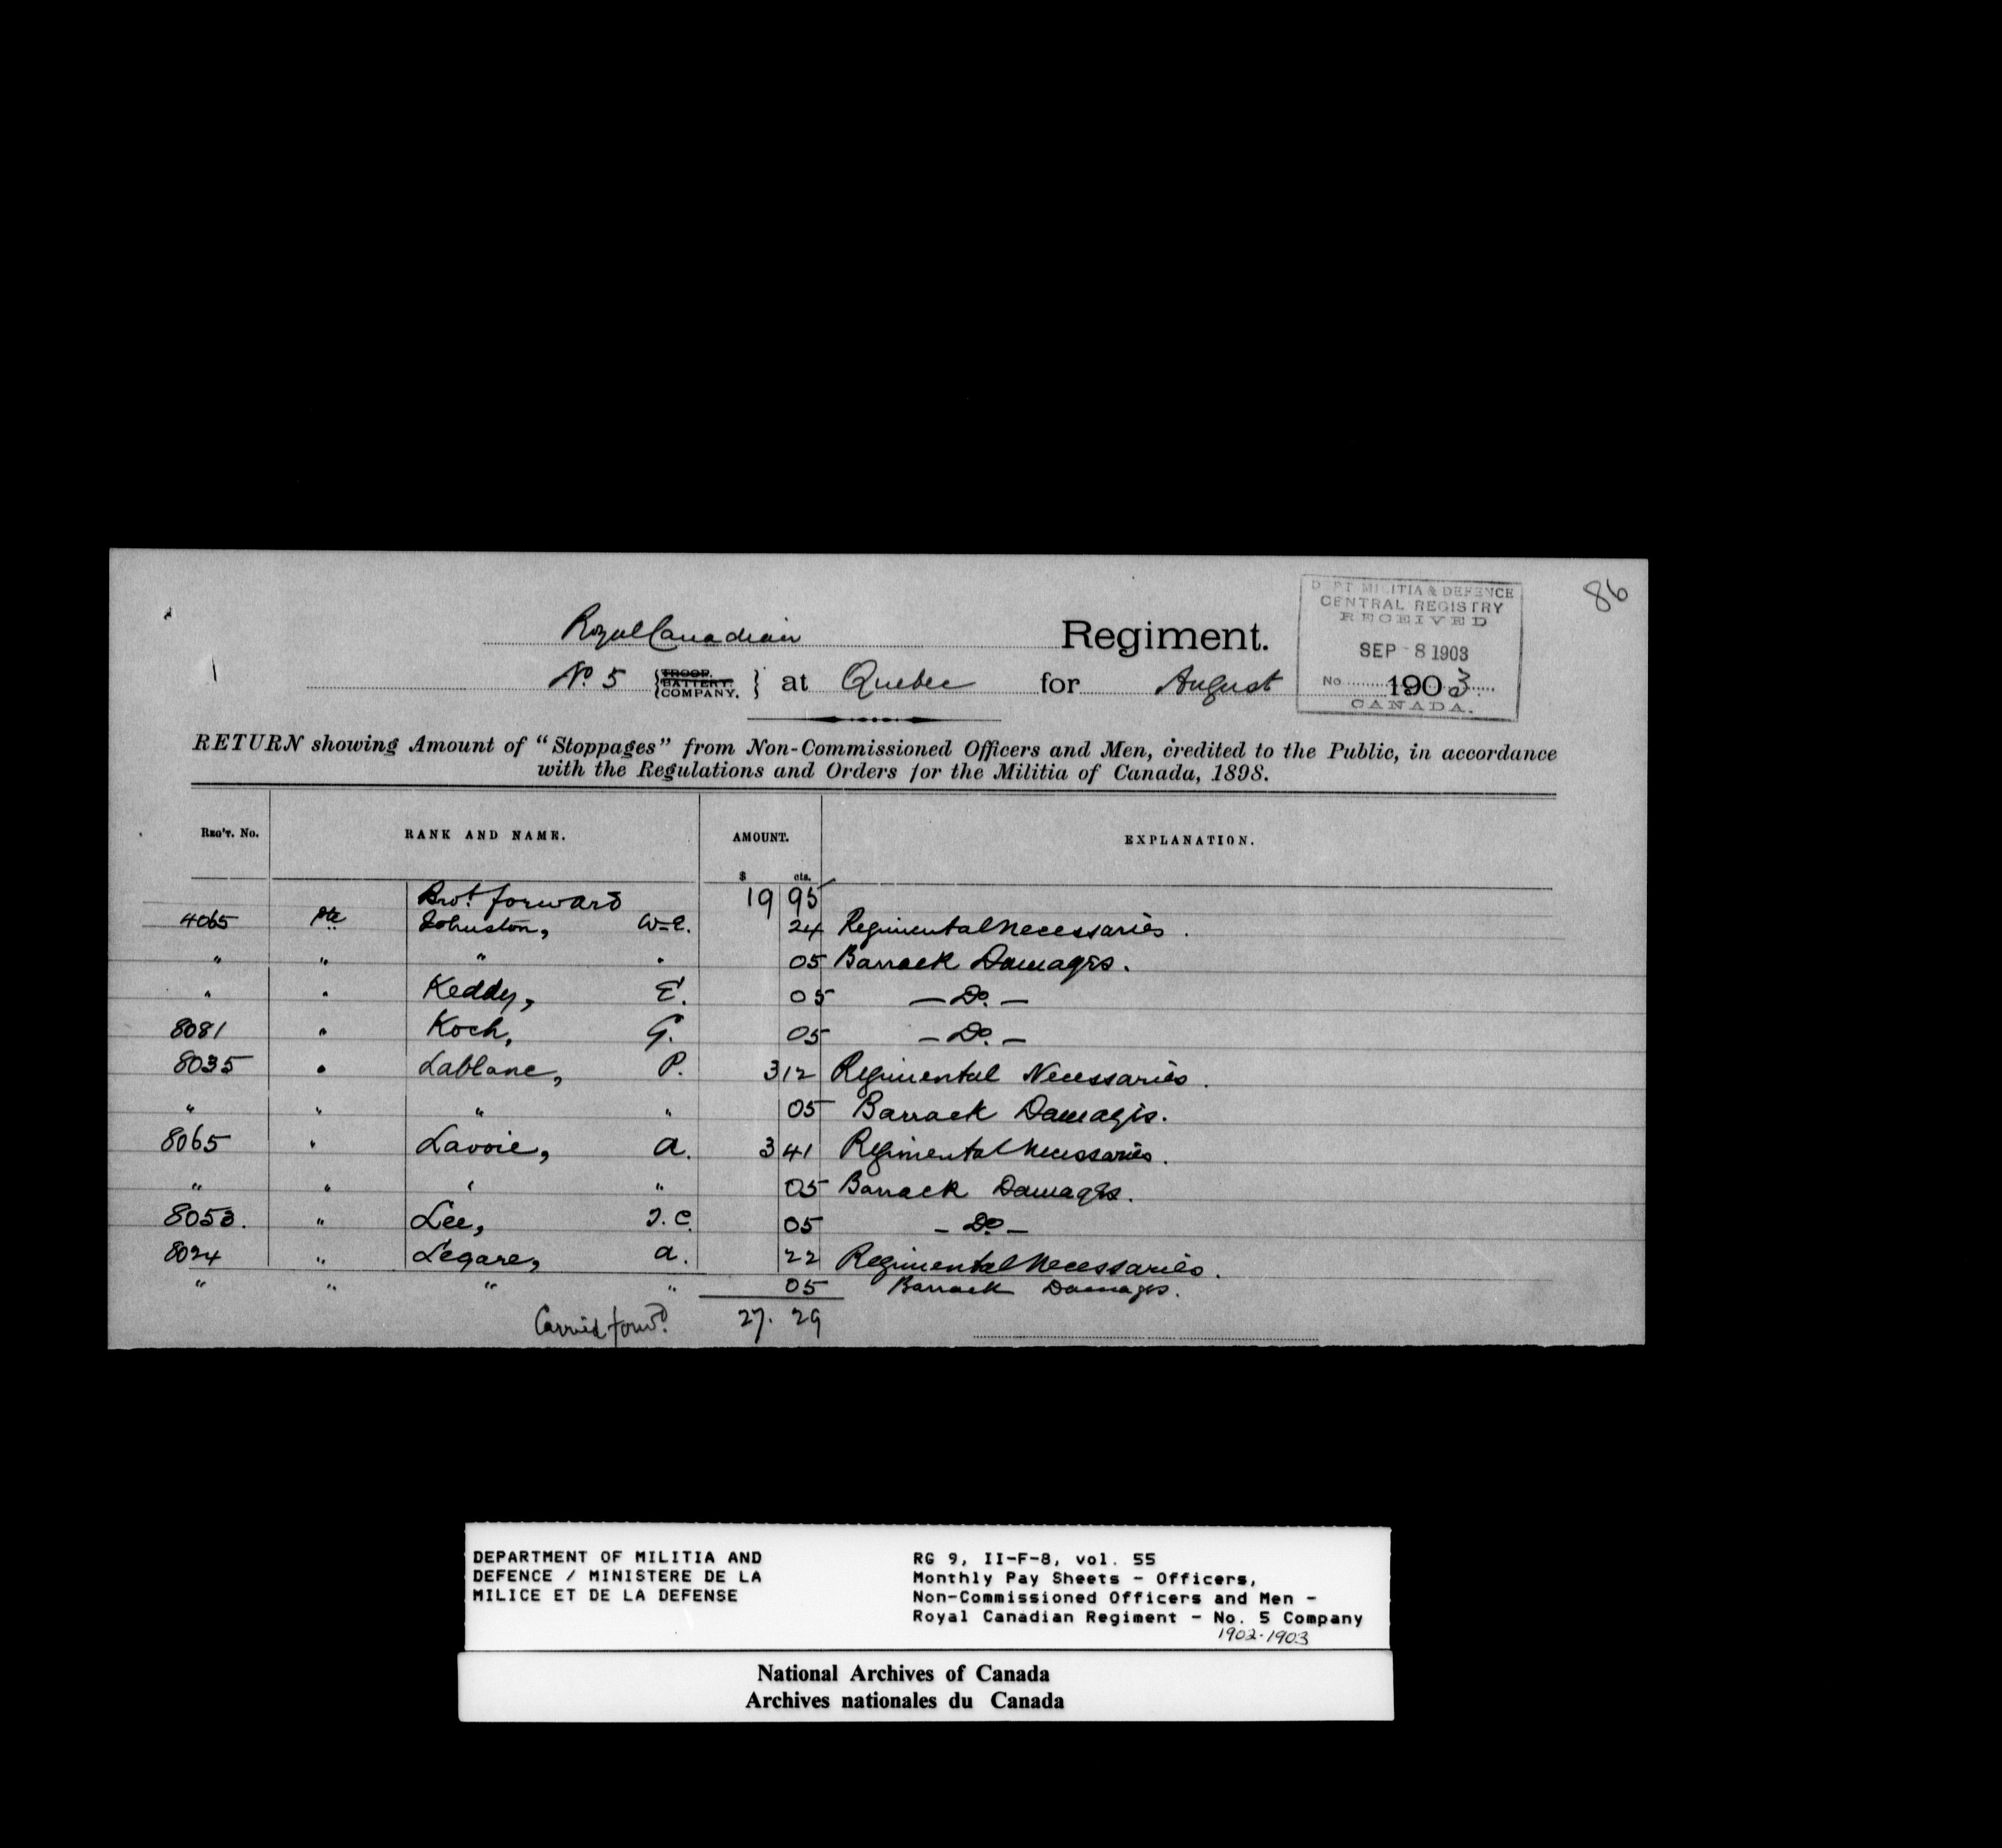 86
DEPT MILITIA & DEFENCE
CENTRAL REGISTRY
RECEIVED
SEP - 8 1903
No
CANADA.
Royal Canadian Regiment.
No. 5 {TROOP. BATTERY. COMPANY.} at Quebec for August 1903.
RETURN showing Amount of "Stoppages" from Non-Commissioned Officers and Men, credited to the Public, in accordance
with the Regulations and Orders for the Militia of Canada, 1898.
REG'T. No. RANK AND NAME. AMOUNT. EXPLANATION.
$ cts.
Brot. forward 19 95
4065 Pte Johnston, W.E. 24 Regimental Necessaries.
" " " " 05 Barrack Damages.
" " Keddy, E. 05 — Do. —
8081 " Koch, G. 05 — Do. —
8035 " Lablanc, P. 3 12 Regimental Necessaries.
" " " " 05 Barrack Damages.
8065 " Lavoie, A. 3 41 Regimental Necessaries.
" " " " 05 Barrack Damages.
8053. " Lee, J.C. 05 — Do —
8024 " Legare, A. 22 Regimental Necessaries.
" " " " 05 Barrack Damages.
Carried forwd. 27. 29
DEPARTMENT OF MILITIA AND
DEFENCE / MINISTERE DE LA
MILICE ET DE LA DEFENSE
RG 9, II-F-8, vol. 55
Monthly Pay Sheets - Officers,
Non-Commissioned Officers and Men -
Royal Canadian Regiment - No. 5 Company
1902-1903
National Archives of Canada
Archives nationales du Canada